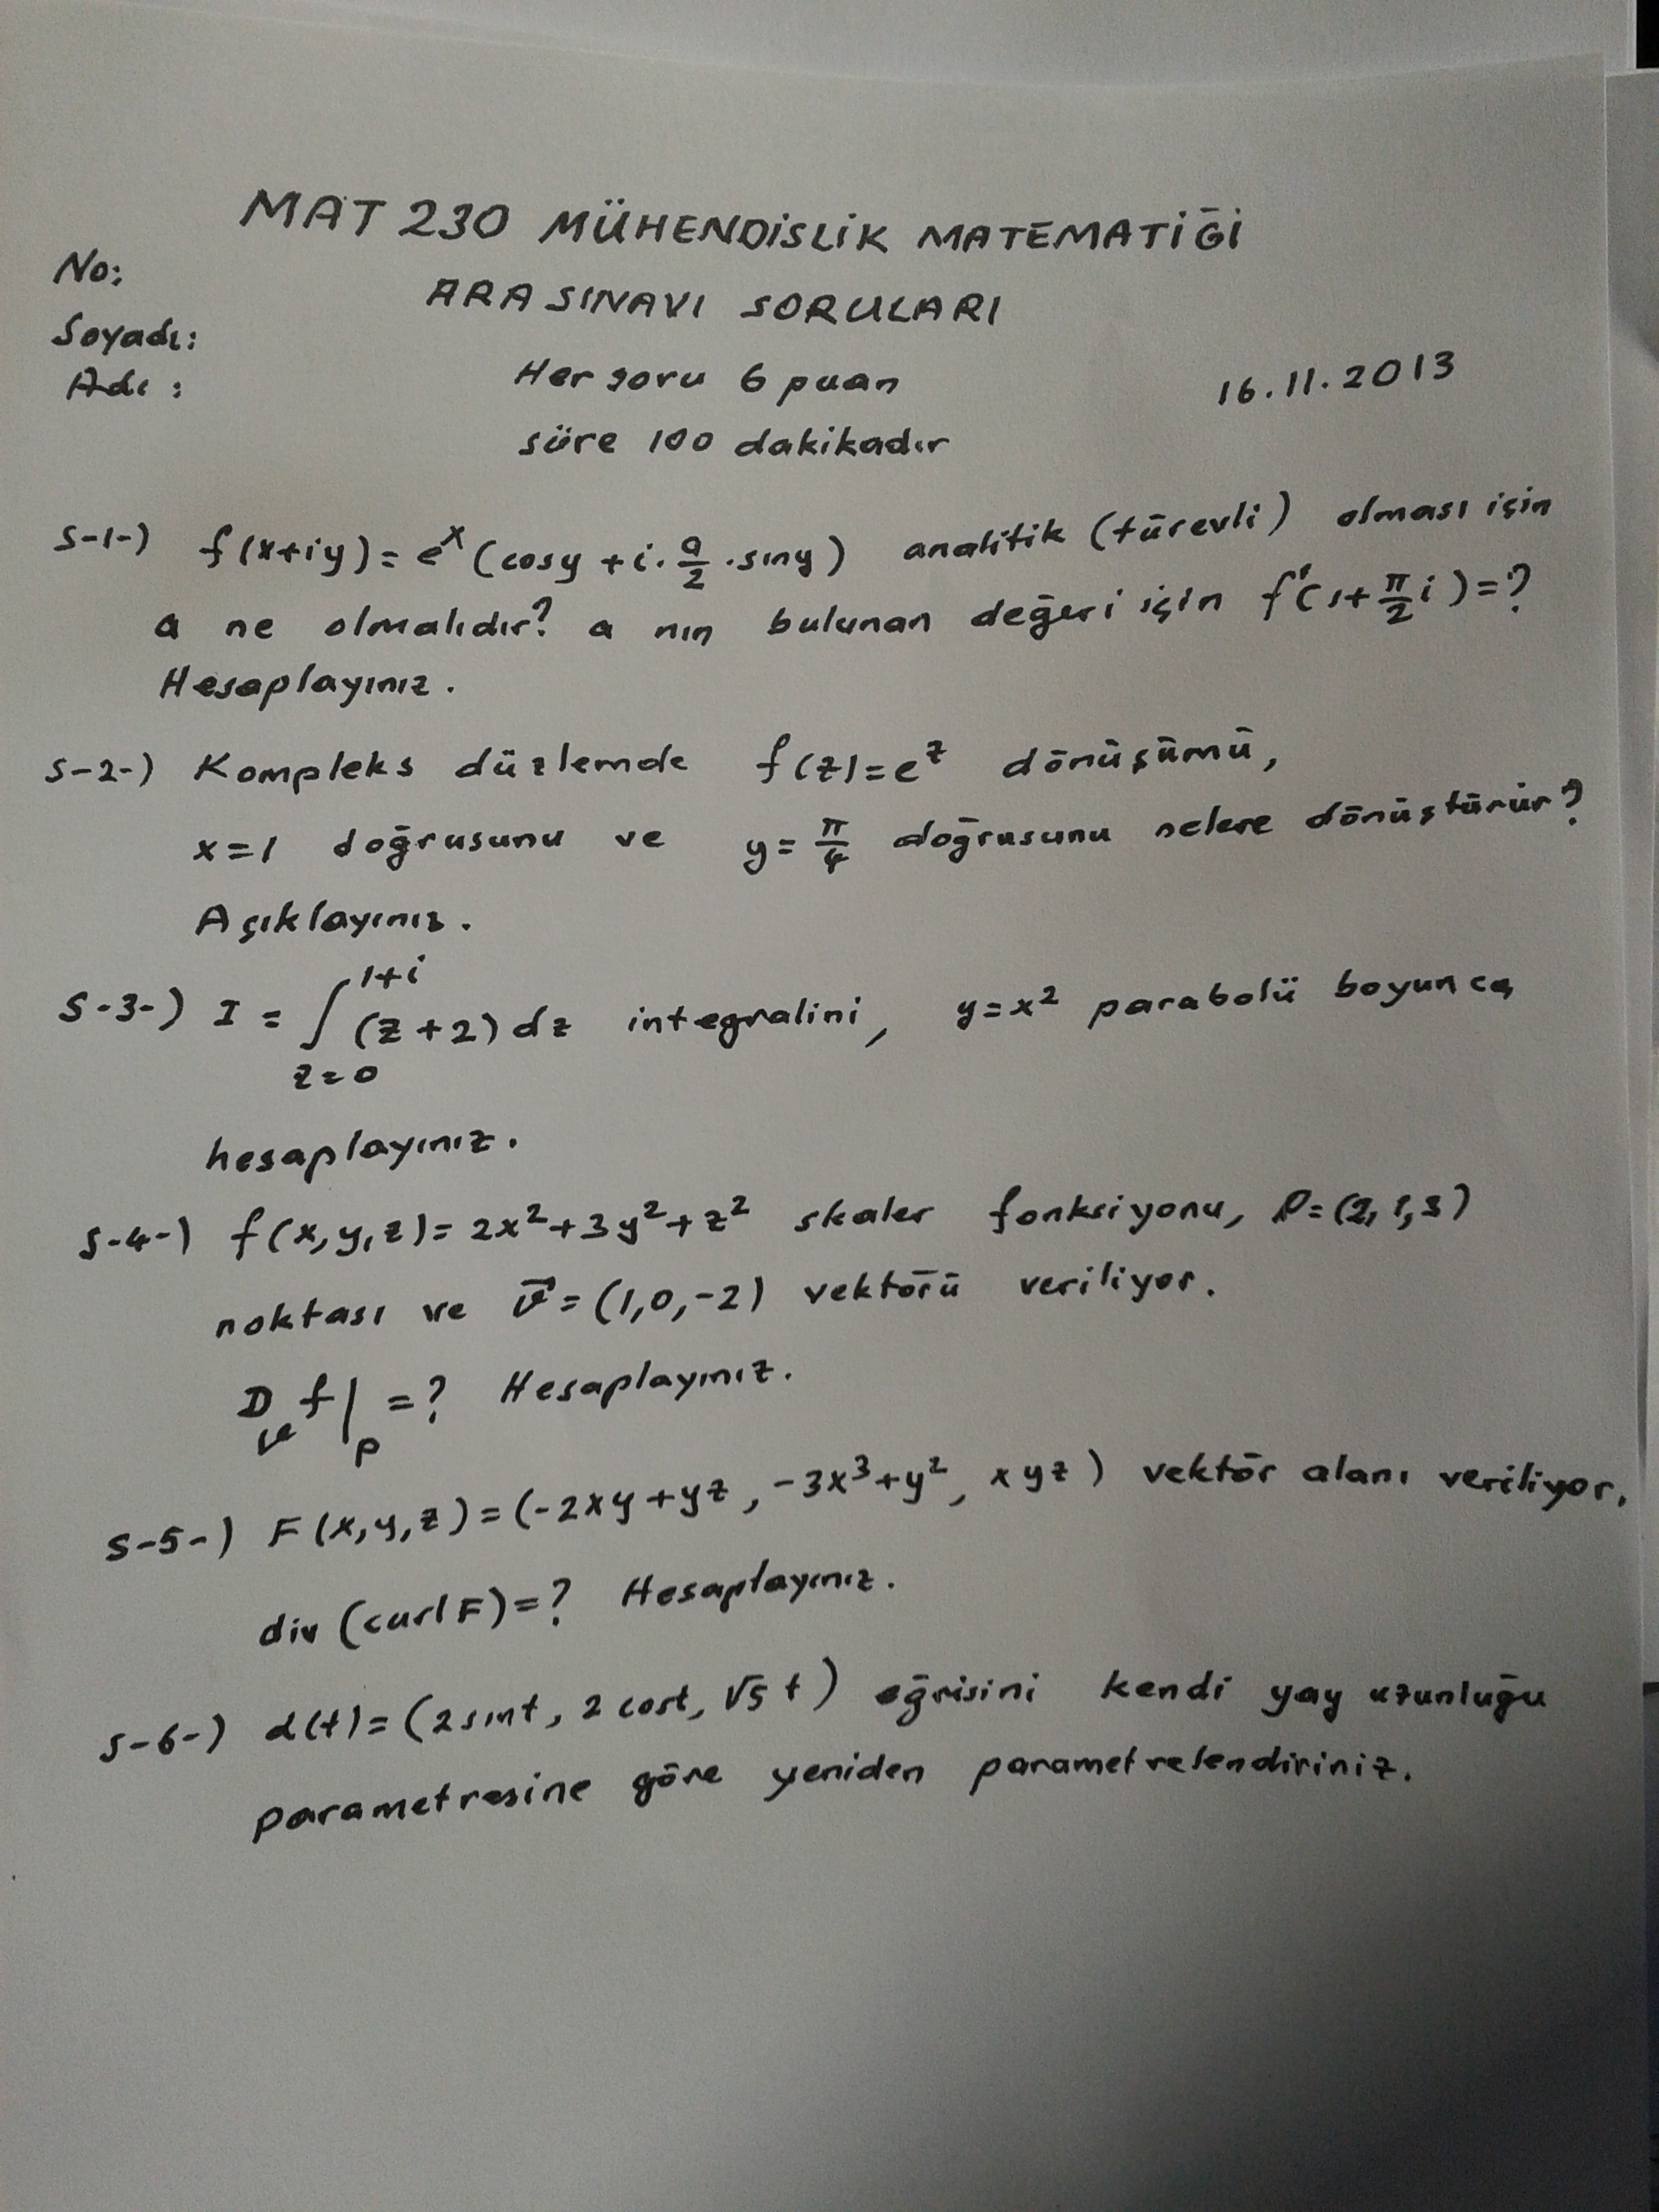 MAT 230 MÜHENDİSLİK MATEMATİĞİ
No:
ARA SINAVI SORULARI
Soyadı:
Adı:
Her soru 6 puan
16.11.2013
süre 100 dakikadır
S-1-) f(x+iy)= e^x (cosy + i. a/2 .siny) analitik (türevli) olması için
a ne olmalıdır? a nın bulunan değeri için f'(1+π/2 i)=?
Hesaplayınız.
S-2-) Kompleks düzlemde f(z)=e^z dönüşümü,
x=1 doğrusunu ve y= π/4 doğrusunu nelere dönüştürür?
Açıklayınız.
S-3-) I = ∫_{z=0}^{1+i} (z+2) dz integralini, y=x² parabolü boyunca
hesaplayınız.
S-4-) f(x,y,z)= 2x²+3y²+z² skaler fonksiyonu, P=(2,1,3)
noktası ve v⃗=(1,0,-2) vektörü veriliyor.
D_v f|_p =? Hesaplayınız.
S-5-) F(x,y,z)=(-2xy+yz, -3x³+y², xyz) vektör alanı veriliyor.
div (curl F)=? Hesaplayınız.
S-6-) α(t)=(2sint, 2cost, √5 t) eğrisini kendi yay uzunluğu
parametresine göre yeniden parametrelendiriniz.